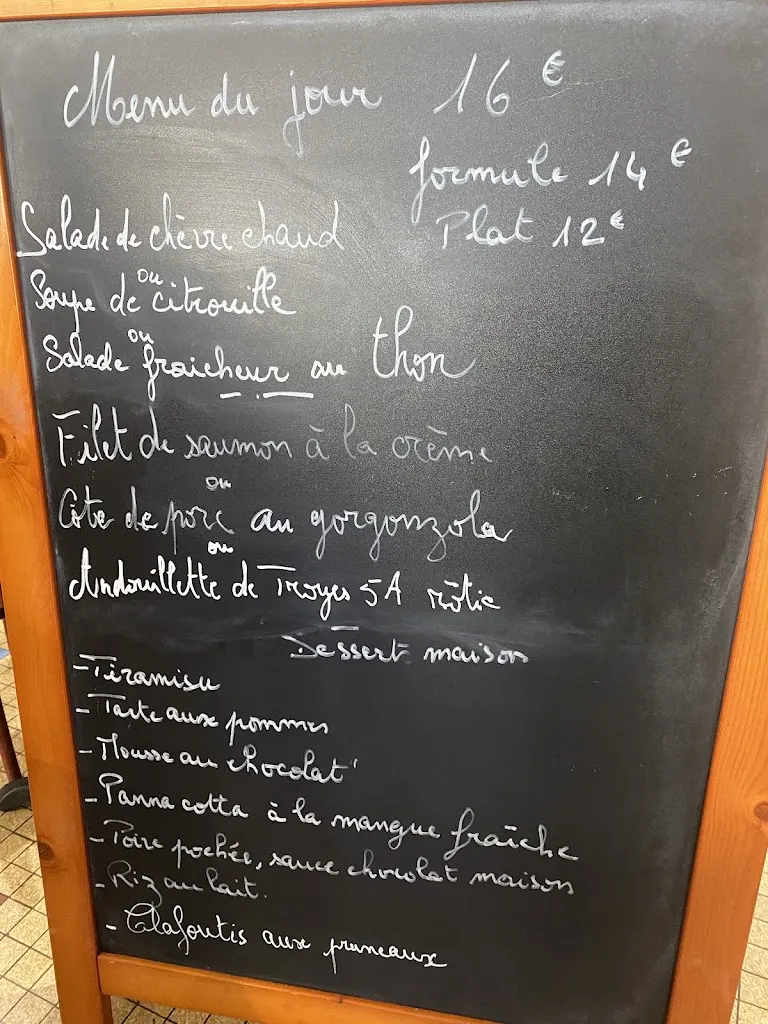 Menu du jour 16 €
formule 14 €
Plat 12 €
Salade de chèvre chaud
ou
Soupe de citrouille
ou
Salade fraicheur au thon
Filet de saumon à la crème
ou
Côte de porc au gorgonzola
ou
Andouillette de Troyes 5A rôtie
Dessert maison
- Tiramisu
- Tarte aux pommes
- Mousse au chocolat
- Panna cotta à la mangue fraîche
- Poire pochée, sauce chocolat maison
- Riz au lait.
- Clafoutis aux pruneaux